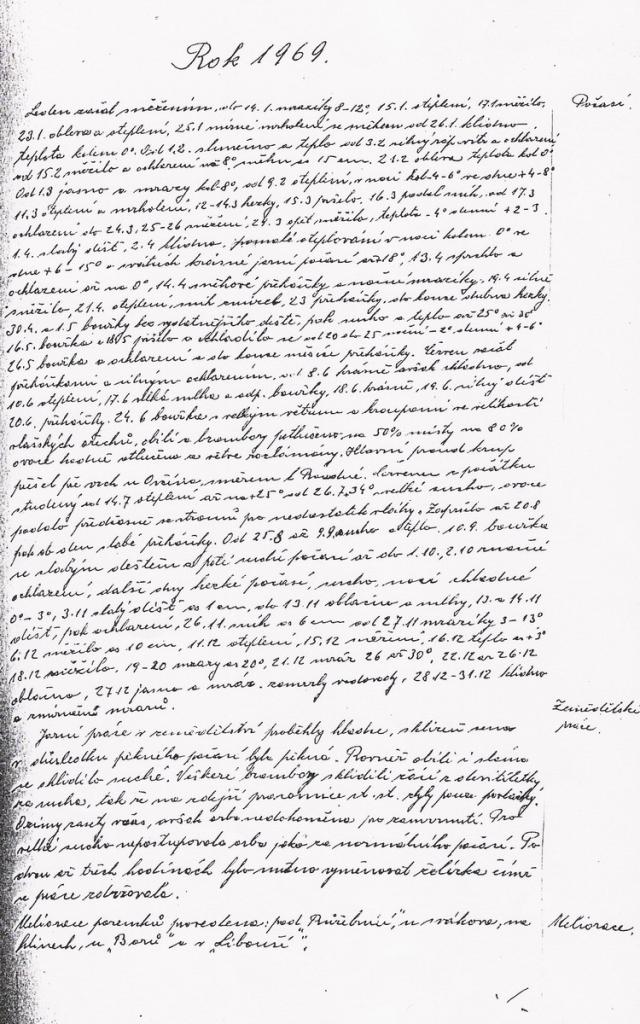 Rok 1969.
Leden začal sněžením, do 14.1. mrazíky 8-12°, 15.1. oteplení, 17.1 sněžilo, Počasí.
23.1. obleva a oteplení, 25.1 mírné mrholení se sněhem od 26.1. klidno
teplota kolem 0°. Od 1.2. slunečno a teplo od 3.2 silný záp. vítr a ochlazení
od 15.2 sněžilo a ochlazení na 8° sněhu 15 cm. 21.2 obleva teplota kol 0°
Od 1.3 jasno a mrazy kol 8°, od 9.2 oteplení, v noci kol 4-6° ve dne +4-8°
11.3 oteplení a mrholení, 12-14.3 hezky, 15.3 pršelo, 16.3 padal sníh, od 17.3
ochlazení do 24.3, 25-26 sněžení, 27.3 opět sněžilo, teplota -4° denní +2-3
1.4. slabý déšť, 2.4 klidno, pomalé oteplování v noci kolem 0° ve
dne +6 - 15° o svátcích krásné jarní počasí až 18°, 13.4 sprchlo a
ochlazení až na 0°, 14.4 sněhové přeháňky a noční mrazíky. 19.4 silně
sněžilo, 21.4. oteplení, sníh zmizel, 23 přeháňky, do konce dubna hezky.
30.4. a 1.5 bouřky bez vydatnějšího deště, pak sucho a teplo až 25°
16.5. bouřka a 18.5 pršelo a ochladilo se od 20 do 25 noční -2° denní +4-6°
26.5 bouřka a ochlazení a do konce měsíce přeháňky. Červen začal
přeháňkami a silným ochlazením, od 8.6 krásně avšak chladno, od
10.6 oteplení, 17.6 velká mlha a odp. bouřky, 18.6. krásně, 19.6. silný déšť
20.6. přeháňky. 24.6 bouřka s velkým větrem a kroupami ve velikosti
vlašských ořechů, obilí a brambory potlučeno, na 50% místy na 80%
ovoce hodně otlučeno a větve rozlámány. Hlavní proud krup
přišel směrem k Červenec z počátku
studený od 14.7 oteplení až na +25° od 26.7. 34° velké sucho, ovoce
padalo předčasně se stromů pro nedostatek vláhy. Zapršelo až 20.8
pak ob den slabé přeháňky. Od 25.8 až 9.9. sucho a teplo. 10.9. bouřka
se slabým deštěm a poté suché počasí až do 1.10., 2.10 značné
ochlazení, další dny hezké počasí, sucho, noci chladné
0° - 3°, 3.11 slabý déšť as 1 cm, do 13.11 oblačno a mlhy, 13. a 14.11
déšť, pak ochlazení, 26.11 sníh as 6 cm od 27.11 mrazíky 3 - 13°
6.12 sněžilo as 10 cm, 11.12 oteplení, 15.12 sněžení, 16.12 teplo as +3°
18.12 sněžilo, 19-20 mrazy as 20°, 21.12 mráz 26 až 30°, 22.12 až 26.12
oblačno, 27.12 jasno a mráz. zamrzly vodovody, 28.12-31.12 klidno
a zmírnění mrazů.
Jarní práce v zemědělství proběhly hladce, sklizeň sena Zemědělské práce.
v důsledku pěkného počasí byla pěkná. Rovněž obilí i sláma
se sklidilo suché. Veškeré brambory sklidili
za sucha, tak že na zdejší pracovnice st. st. zbyly pouze
Ozimy zasety včas, avšak orba nedokončena pro zamrznutí. Pro
velké sucho nepostupovala orba jako za normálního počasí. Po
dvou až třech hodinách bylo nutno vyměňovat želízka čímž
se práce zdržovala.
Meliorace pozemků povolena: pod „Růžebnicí", u svákova, na Meliorace.
hlinech, u „Borů" a v „Libouší".